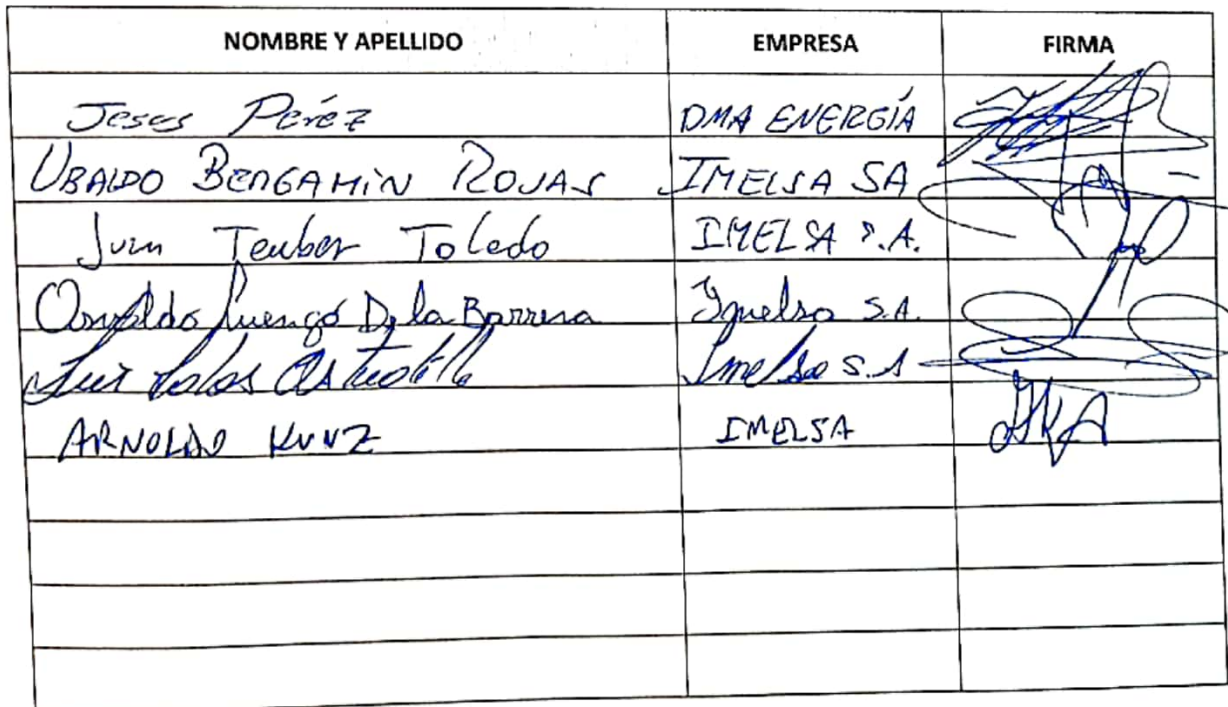 NOMBRE Y APELLIDO EMPRESA FIRMA
Jesus Peréz DMA ENERGÍA
UBALDO BENGAMIN ROJAS IMELSA SA
Juan Teuber Toledo IMELSA S.A.
Osvaldo Luengo De la Barrera Imelsa S.A.
Luis Astudillo Imelsa S.A
ARNOLDO KUNZ IMELSA